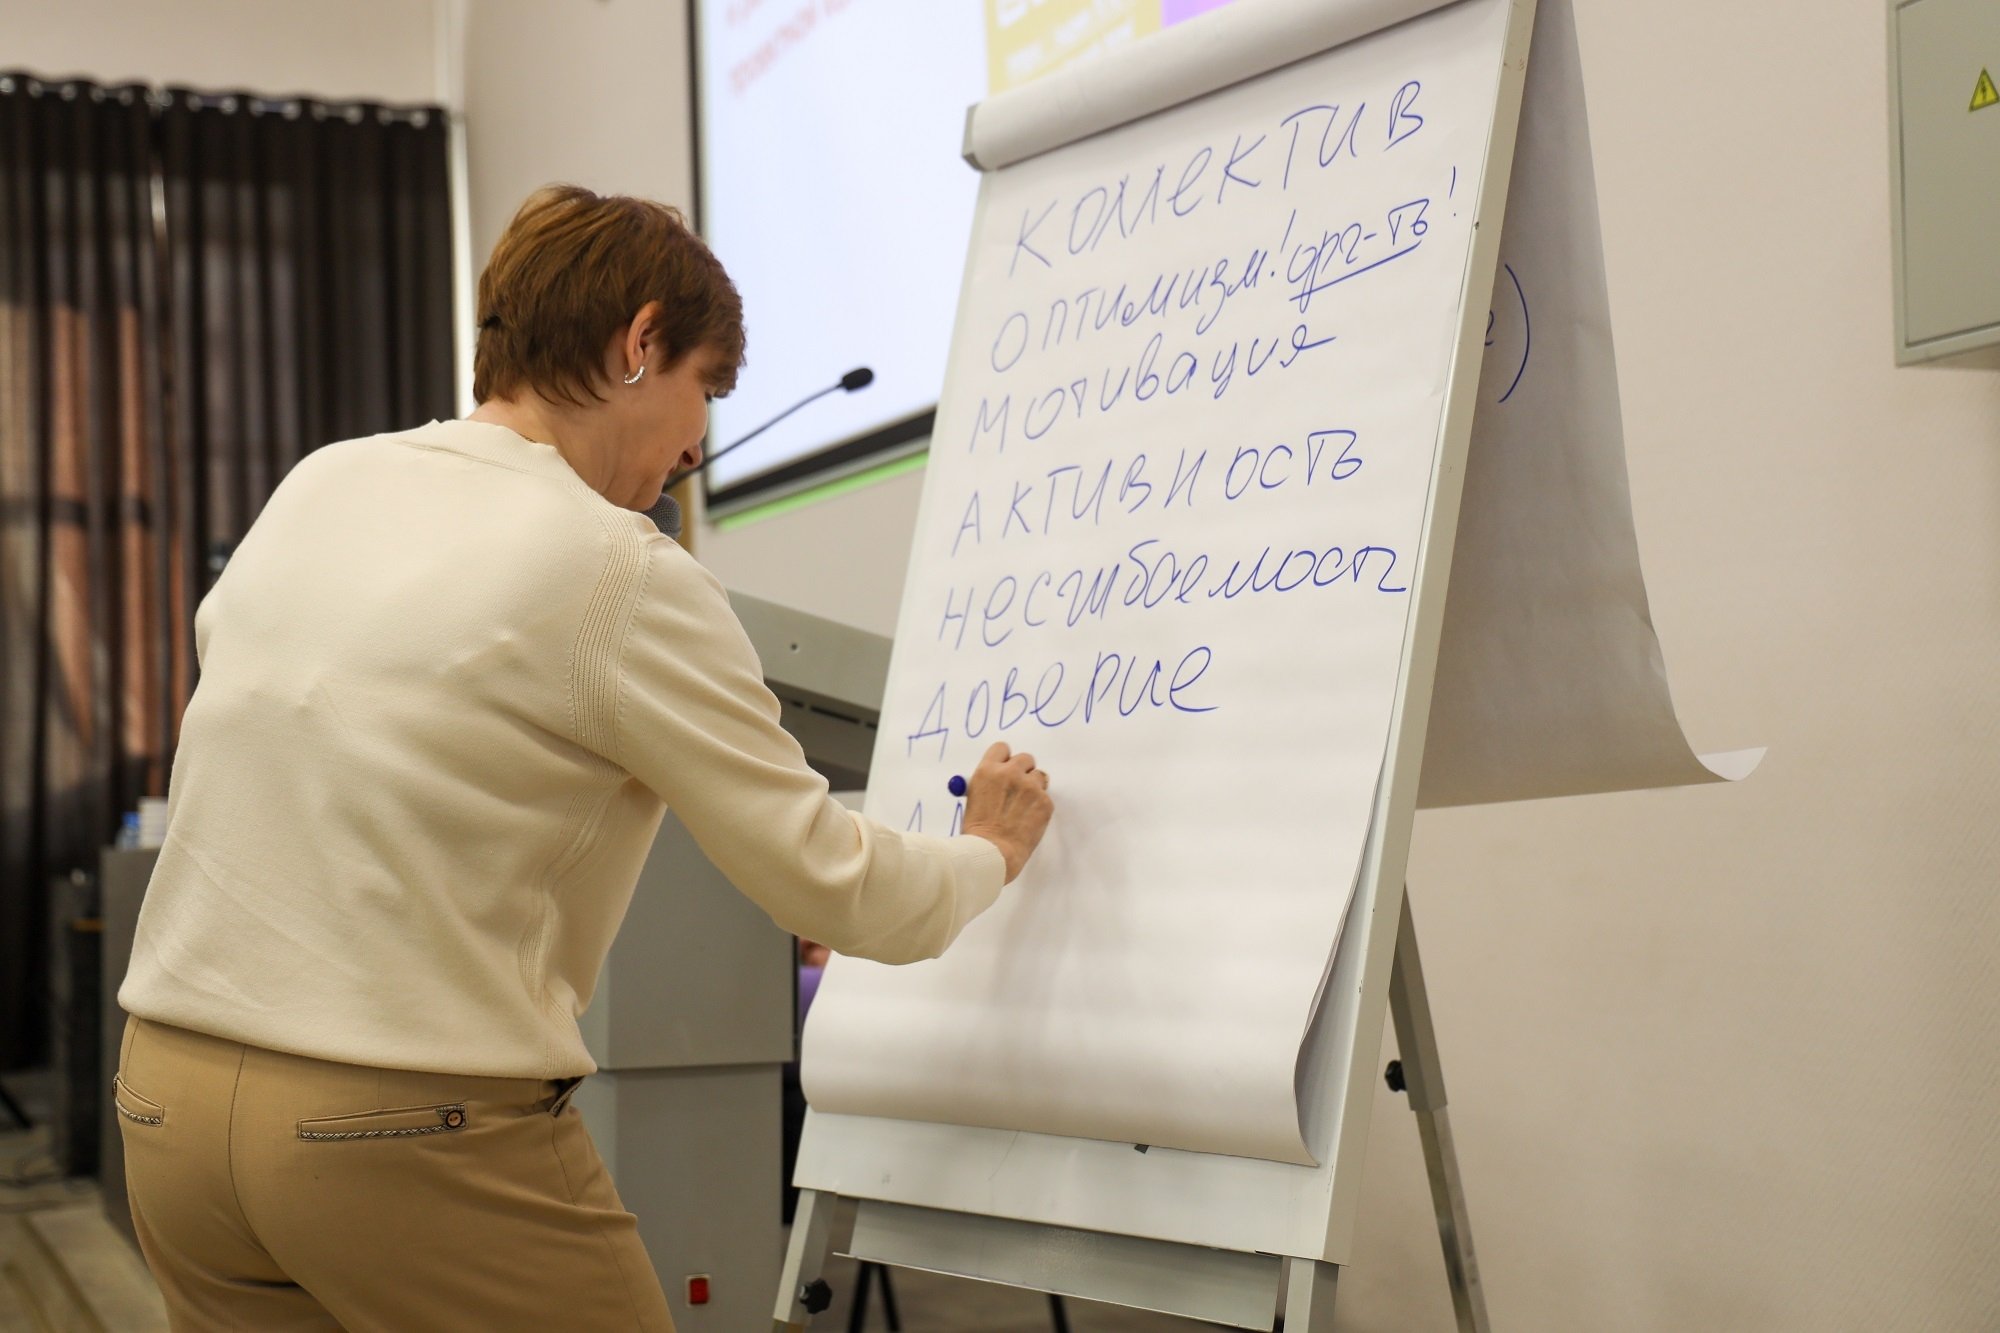 коллектив
оптимизм! орг-ть!
мотивация
активность
несгибаемость
доверие